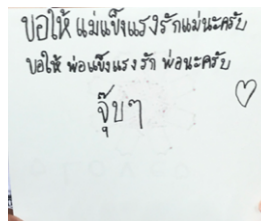 ขอให้ แม่แข็งแรงรักแม่นะครับ
ขอให้ พ่อแข็งแรง รัก พ่อนะครับ
จุ๊บๆ